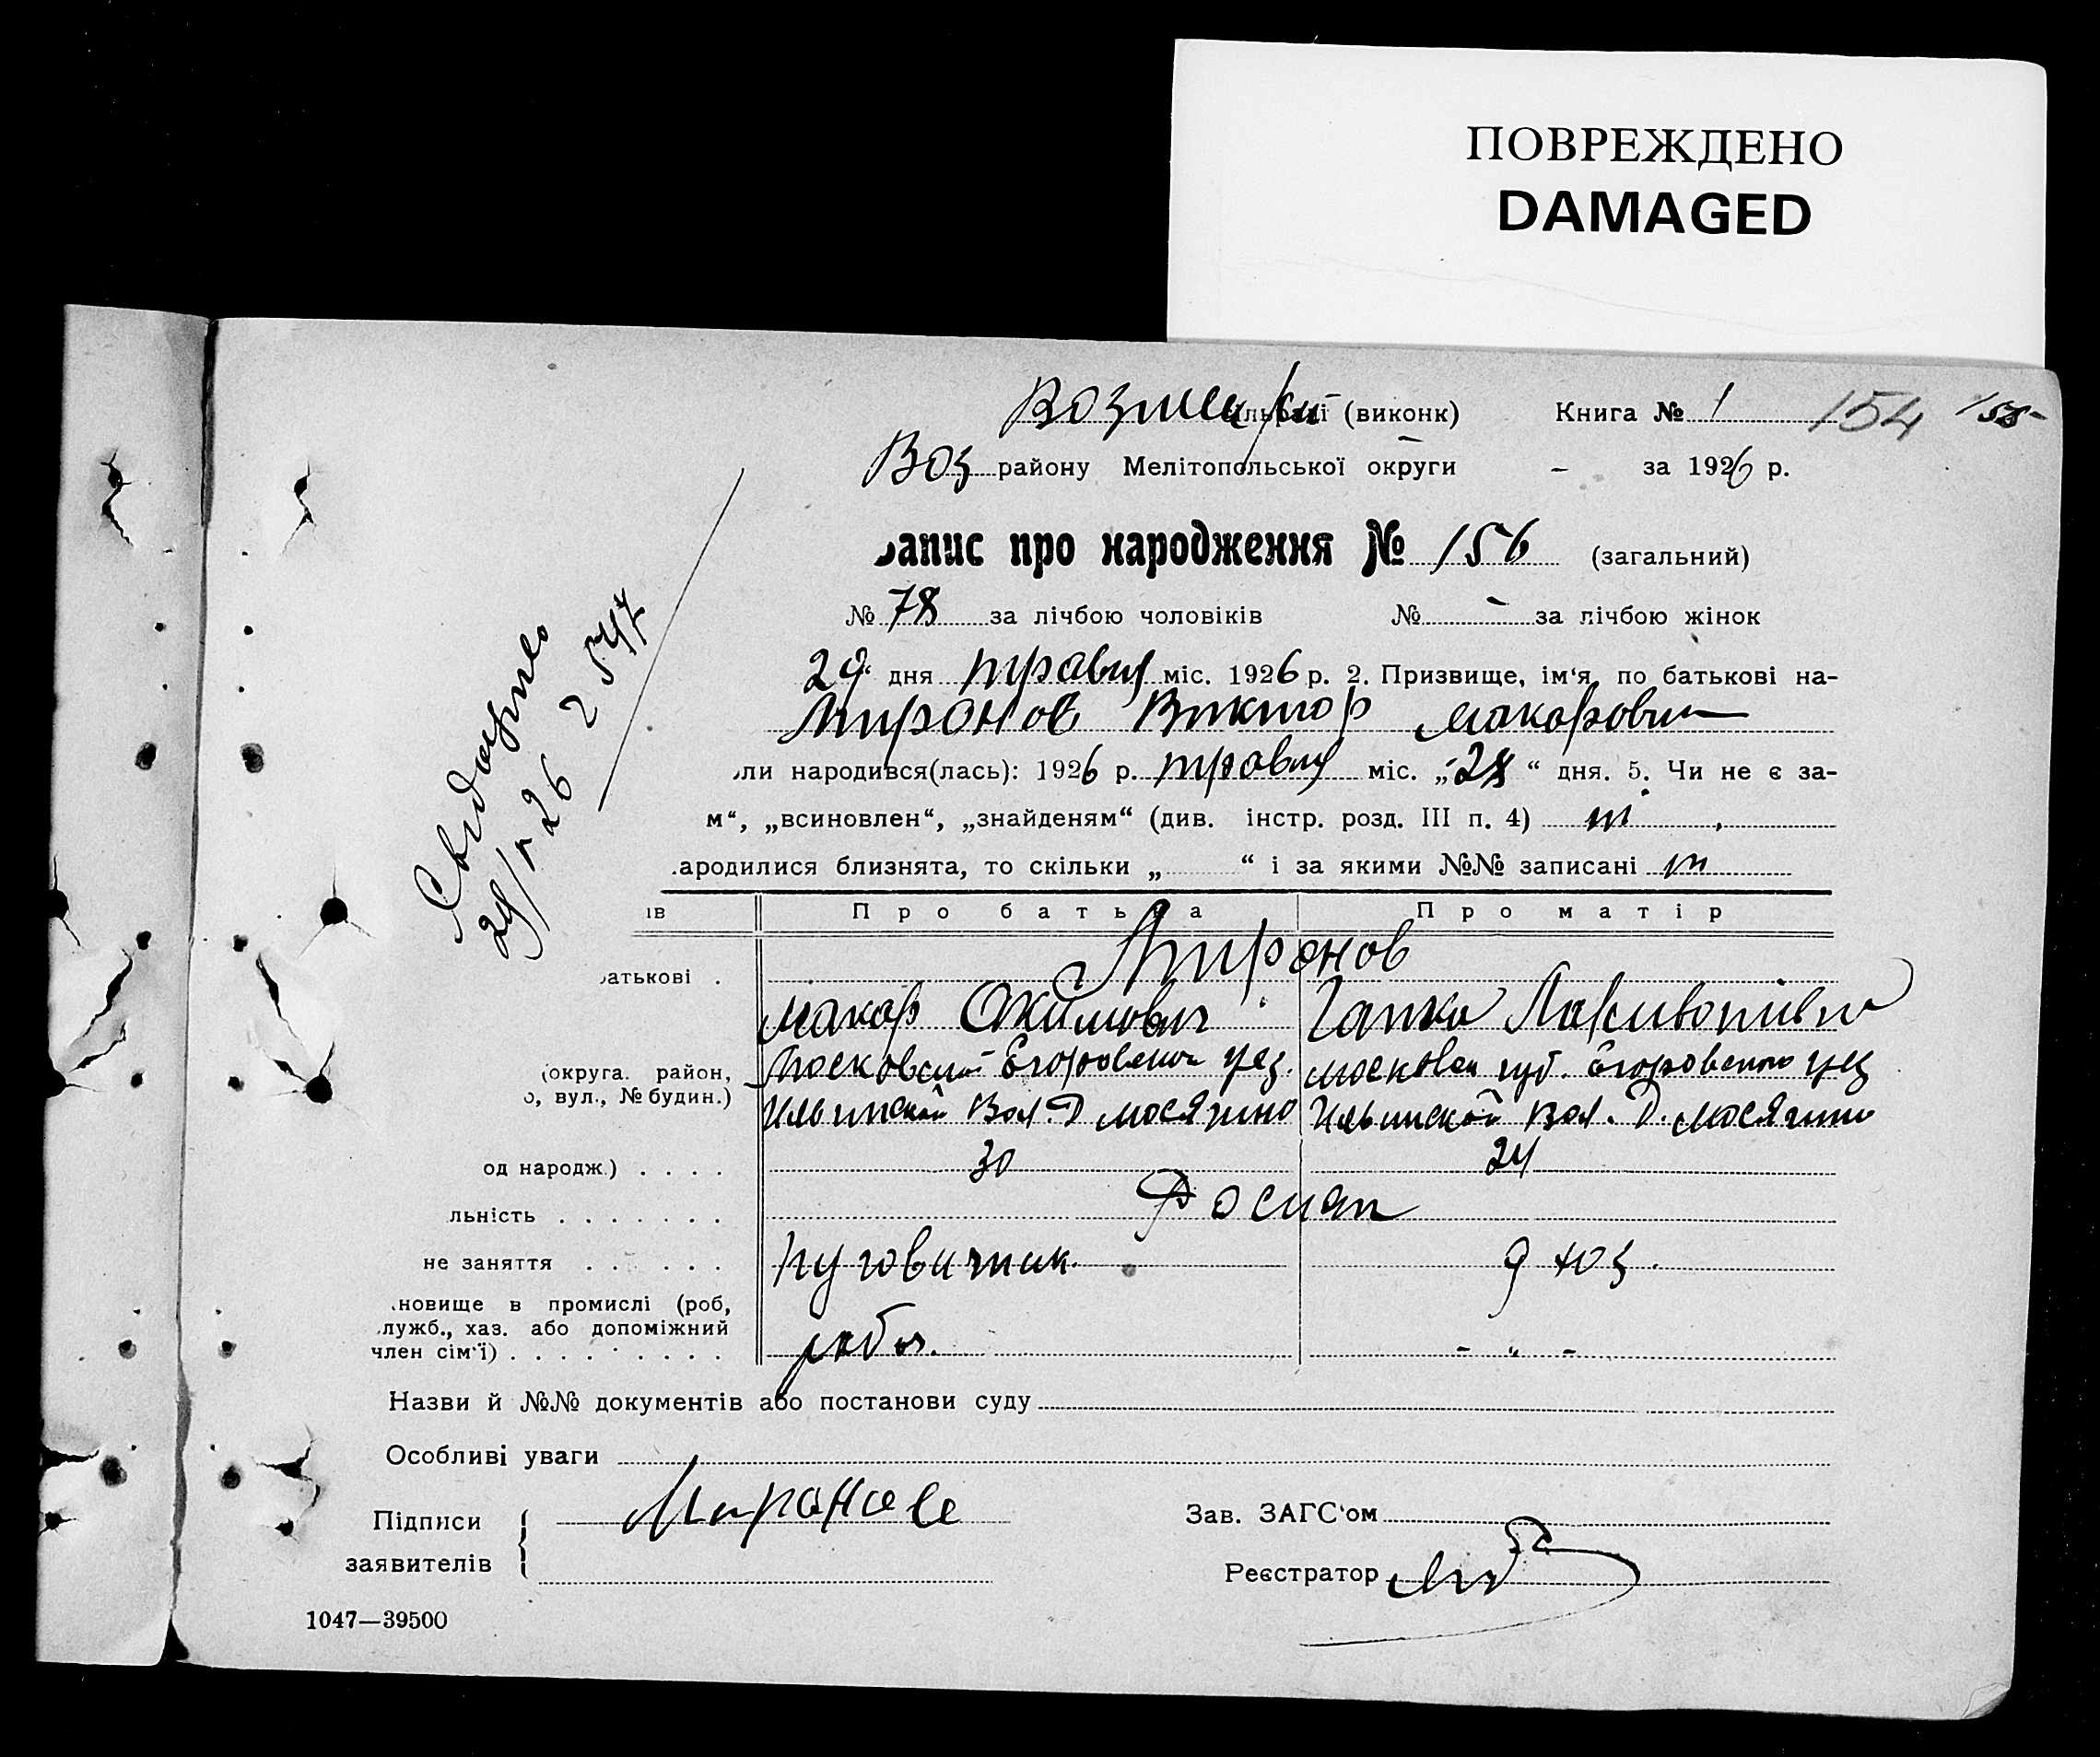 ПОВРЕЖДЕНО
DAMAGED
(виконк) Книга № 1 154 155
Воз району Мелітопольської округи - за 1926 р.
апис про народження № 156 (загальний)
№ 78 за лічбою чоловіків № - за лічбою жінок
29“ дня травня міс. 1926 р. 2. Призвище, ім‘я, по батькові на-
Миронов Виктор Макарович
ли народився(лась): 1926 р. травня міс. „28“ дня. 5. Чи не є за-
м“, „всиновлен“, „знайденям“ (див. інстр. розд. III п. 4) ні
ародилися близнята, то скільки „ “ і за якими №№ записані ні
ів Про батька Про матір
Миронов
атькові .
Макар Якимович Гапка
(округа. район, Московской Егоровской уез. Московск губ. Егоровского уез
о, вул., № будин.) Ильинской Вол. Д Мосягино Ильинской Вол. Д. Мосягино
од народж.) . . . . 30 24
льність . . . . . . . Росиян
не заняття . . . . . . Пуговичник д хоз.
новище в промислі (роб,
лужб., хаз. або допоміжний робоч. - „ -
член сім‘ї) . . . . . . . . .
Назви й №№ документів або постанови суду
Особливі уваги
Підписи Миронов Зав. ЗАГС‘ом
заявителів Реєстратор
1047—39500
29/V 26 2 547